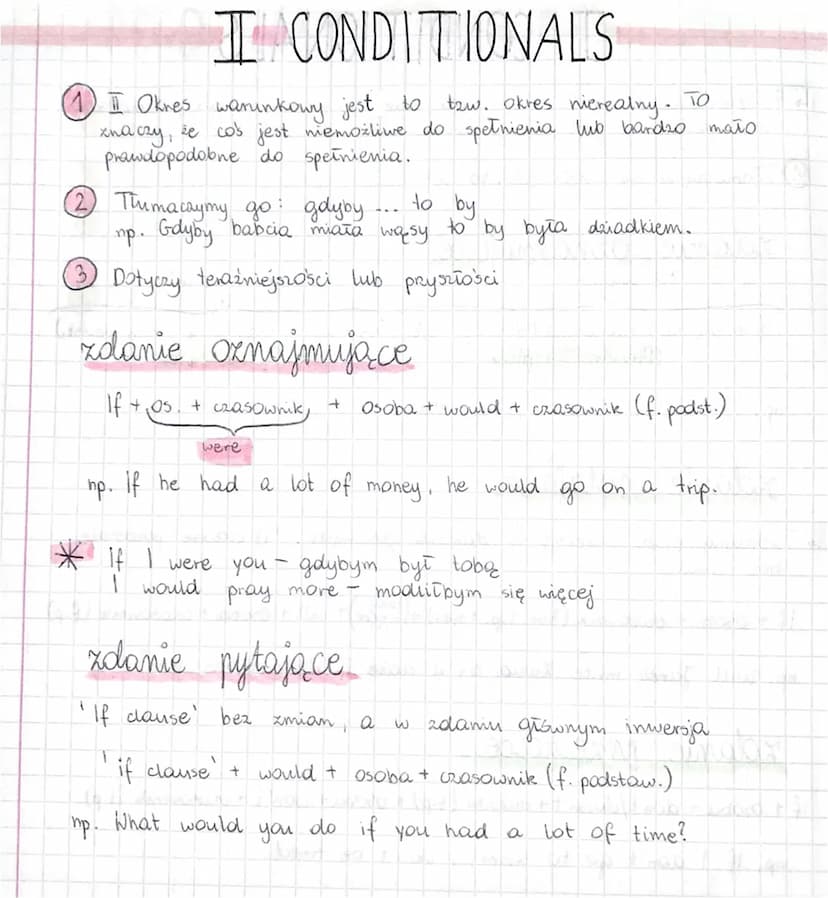 II CONDITIONALS
1 II Okres warunkowy jest to tzw. okres nierealny. TO
znaczy, że coś jest niemożliwe do spełnienia lub bardzo mało
prawdopodobne do spełnienia.
2 Tłumaczymy go: gdyby ... to by
np. Gdyby babcia miała wąsy to by była dziadkiem.
3 Dotyczy teraźniejszości lub przyszłości
zdanie oznajmujące
If + os. + czasownik + osoba + would + czasownik (f. podst.)
were
np. If he had a lot of money, he would go on a trip.
* If I were you - gdybym był tobą
I would pray more - modliłbym się więcej
zdanie pytające
'If clause' bez zmian, a w zdaniu głównym inwersja
'if clause' + would + osoba + czasownik (f. podstaw.)
np. What would you do if you had a lot of time?